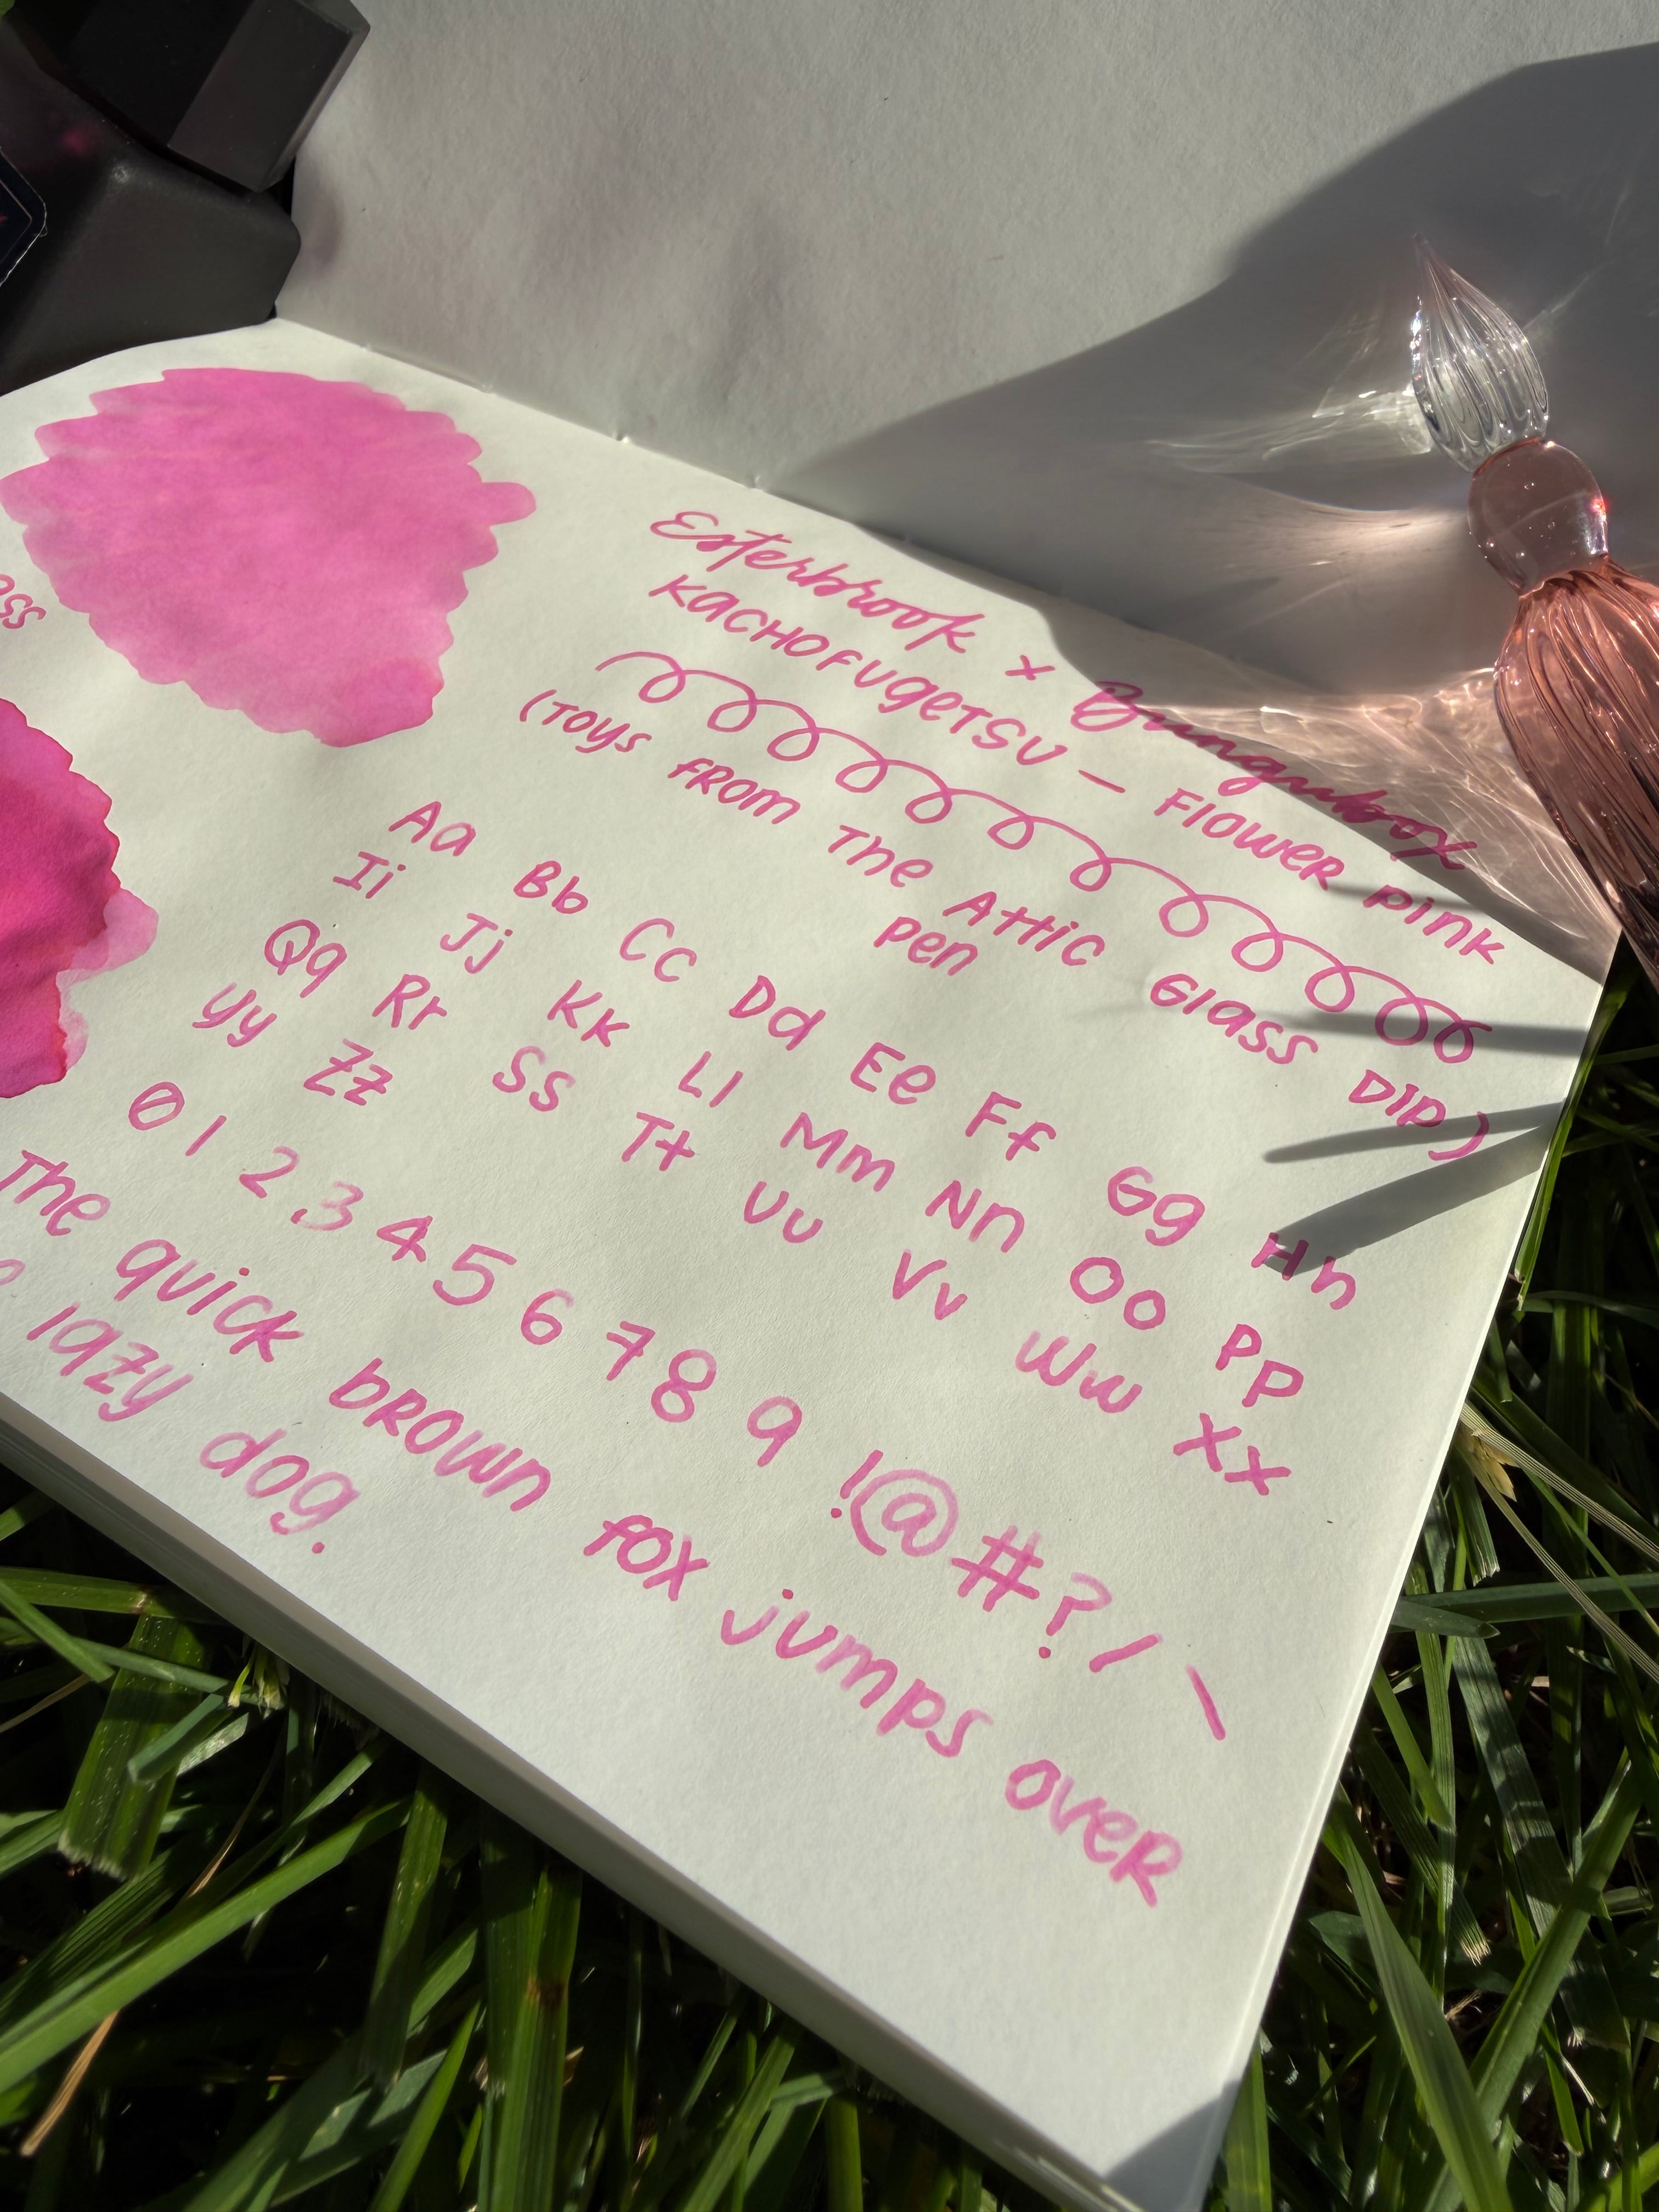 Esterbrook x Bungubox
KACHOFUGETSU — Flower Pink
(Toys from The Attic Glass Dip)
Pen
Aa Bb Cc Dd Ee Ff Gg Hh
Ii Jj Kk Ll Mm Nn Oo Pp
Qq Rr Ss Tt Uu Vv Ww Xx
Yy Zz
0 1 2 3 4 5 6 7 8 9 !@#?/ \
The quick brown fox jumps over
lazy dog.